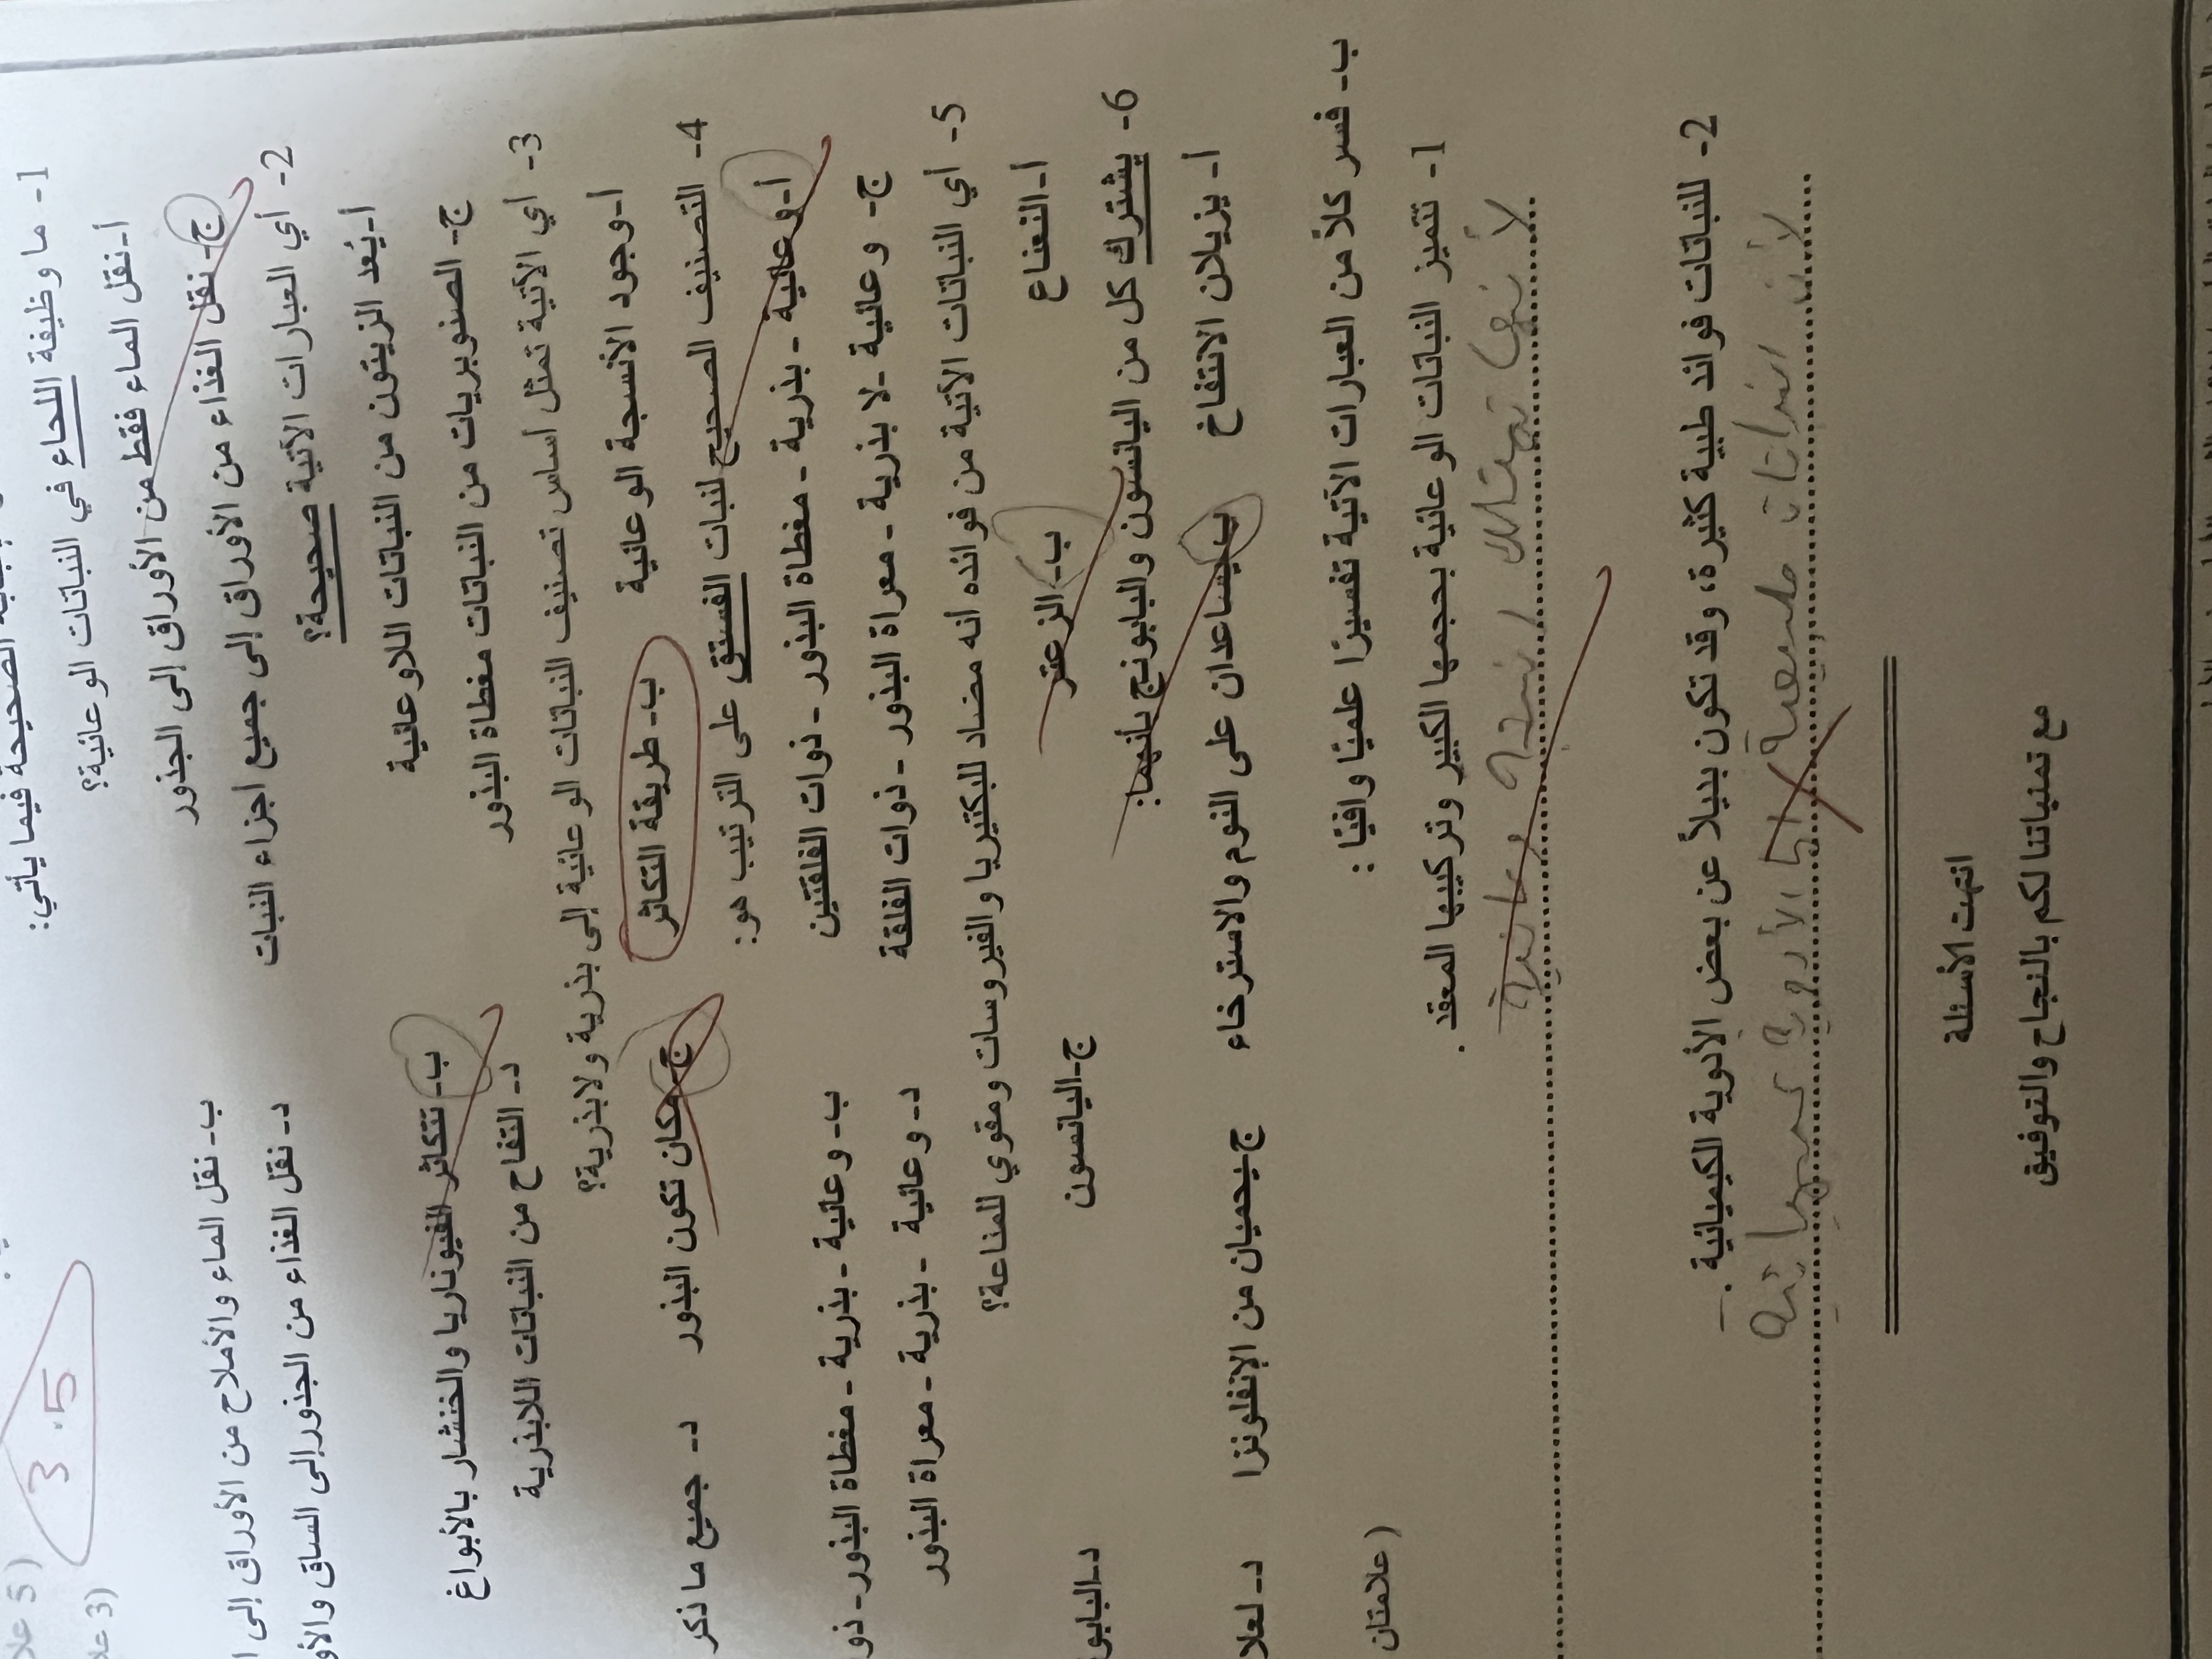 الصحيحة فيما يأتي:
(علا 5
(علا 3
3.5
1- ما وظيفة اللحاء في النباتات الوعائية؟
أ-نقل الماء فقط من الأوراق إلى الجذور ب- نقل الماء والأملاح من الأوراق إلى
ج- نقل الغذاء من الأوراق إلى جميع اجزاء النبات د- نقل الغذاء من الجذور إلى الساق والأو
2- أي العبارات الآتية صحيحة؟
أ-يُعد الزيتون من النباتات اللاوعائية ب- تتكاثر الفيوناريا والخنشار بالأبواغ
ج- الصنوبريات من النباتات مغطاة البذور د- التفاح من النباتات اللابذرية
3- أي الآتية تمثل أساس تصنيف النباتات الوعائية إلى بذرية ولابذرية؟
أ-وجود الأنسجة الوعائية ب- طريقة التكاثر ج-مكان تكون البذور د- جميع ما ذكر
4- التصنيف الصحيح لنبات الفستق على الترتيب هو:
أ-وعائية - بذرية - مغطاة البذور - ذوات الفلقتين ب- وعائية - بذرية - مغطاة البذور- ذو
ج- وعائية -لا بذرية - معراة البذور - ذوات الفلقة د- وعائية - بذرية - معراة البذور
5- أي النباتات الآتية من فوائده أنه مضاد للبكتيريا والفيروسات ومقوي للمناعة؟
أ-النعناع ب-الزعتر ج-اليانسون د-البابو
6- يشترك كل من اليانسون والبابونج بأنهما:
أ- يزيلان الانتفاخ ب-يساعدان على النوم والاسترخاء ج-يحميان من الإنفلونزا د- لعلا
ب- فسر كلاً من العبارات الآتية تفسيرًا علميًا وافيًا : (علامتان
1- تتميز النباتات الوعائية بحجمها الكبير وتركيبها المعقد .
لأنها تمتلك انسجة وعائية
2- للنباتات فوائد طبية كثيرة، وقد تكون بديلاً عن بعض الأدوية الكيميائية .
لأن النباتات طبيعية أما الأدوية كيميائية
انتهت الأسئلة
مع تمنياتنا لكم بالنجاح والتوفيق